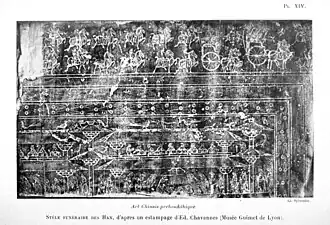 Pl. XIV.
Art Chinois prébouddhique
STÈLE FUNÉRAIRE DES HAN, d'après un estampage d'Ed. Chavannes (Musée Guimet de Lyon).